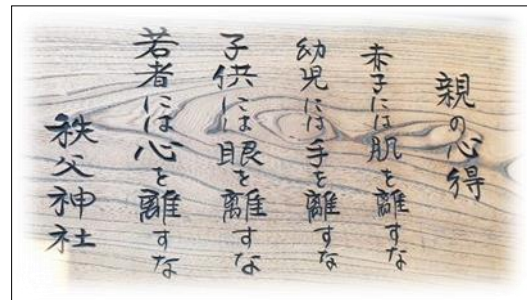 親の心得
赤子には肌を離すな
幼児には手を離すな
子供には眼を離すな
若者には心を離すな
秩父神社